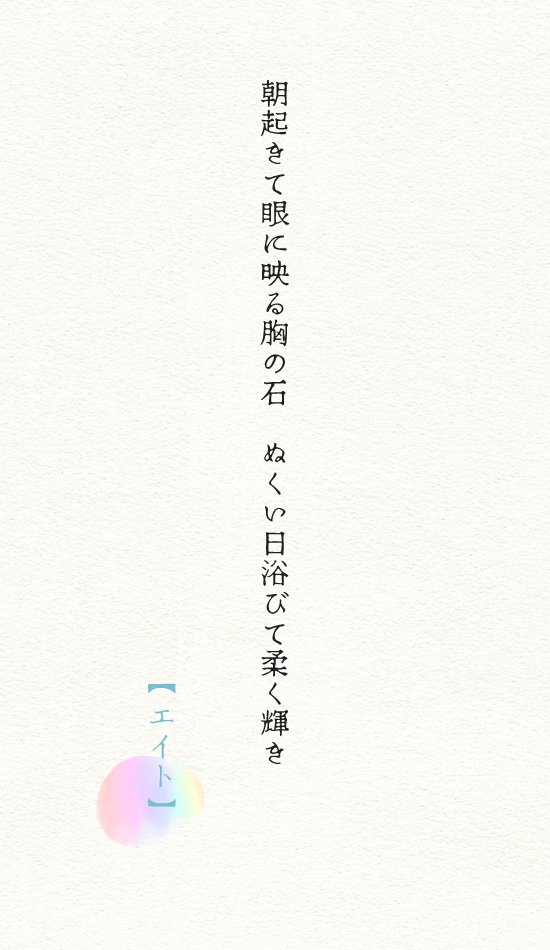 朝起きて眼に映る胸の石　ぬくい日浴びて柔く輝き
【エイト】